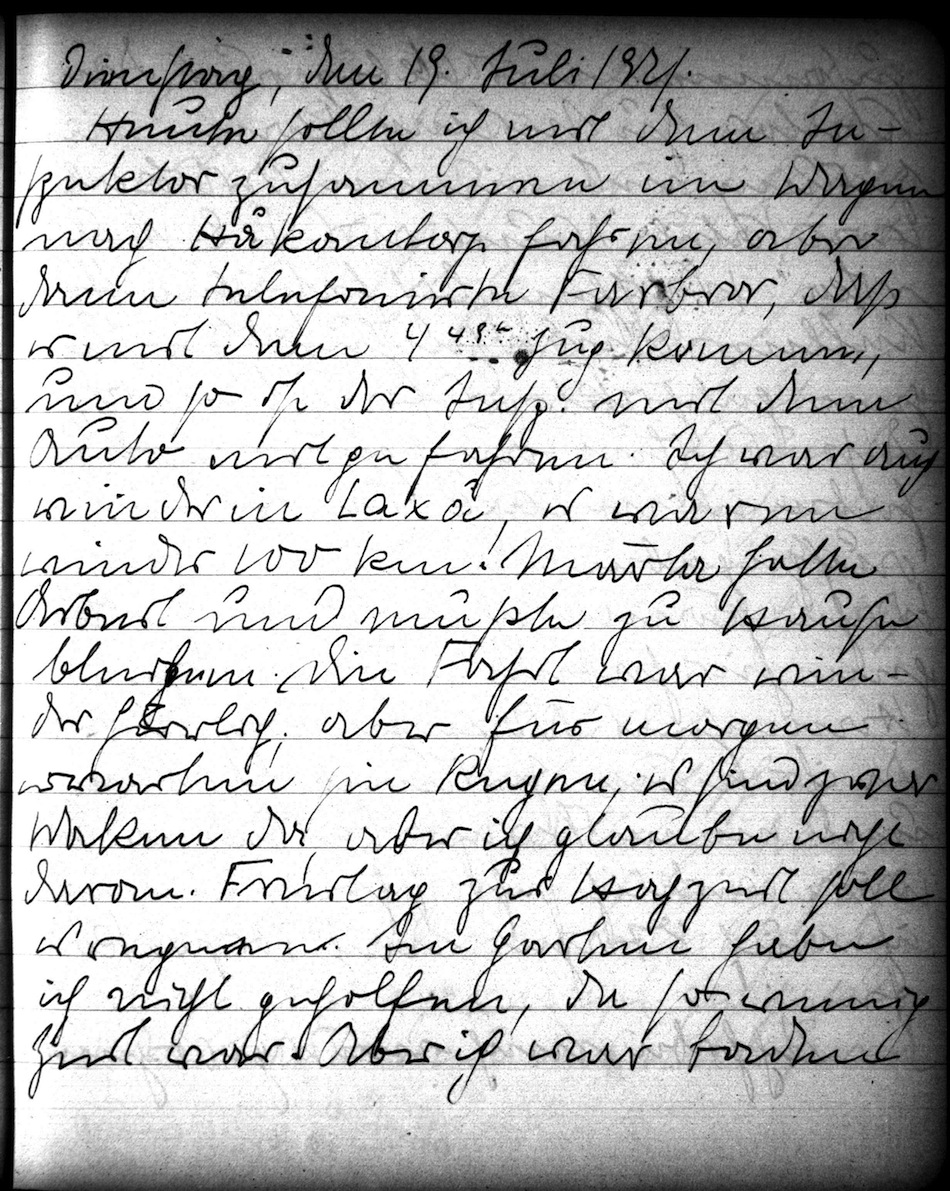 Dienstag, den 19. Juli 1921.
Heute sollte ich mit dem In-
spektor zusammen im Wagen
nach Håkantorp fahren, aber
dann telefonierte Farbror, daß
er mit dem 4 48 Zug kommen,
und so ist der Insp. mit dem
Auto mitgefahren. Ich war auch
wieder in Laxå, es waren
wieder 100 km! Märta hatte
Arbeit und mußte zu Hause
bleiben. Die Fahrt war wie-
der herrlich, aber für morgen
erwarten sie Regen, es sind zwar
Wolken da, aber ich glaube nicht
daran. Freitag zur Hochzeit soll
es regnen. Im Garten habe
ich nicht geholfen, da so wenig
Zeit war. Aber ich war baden